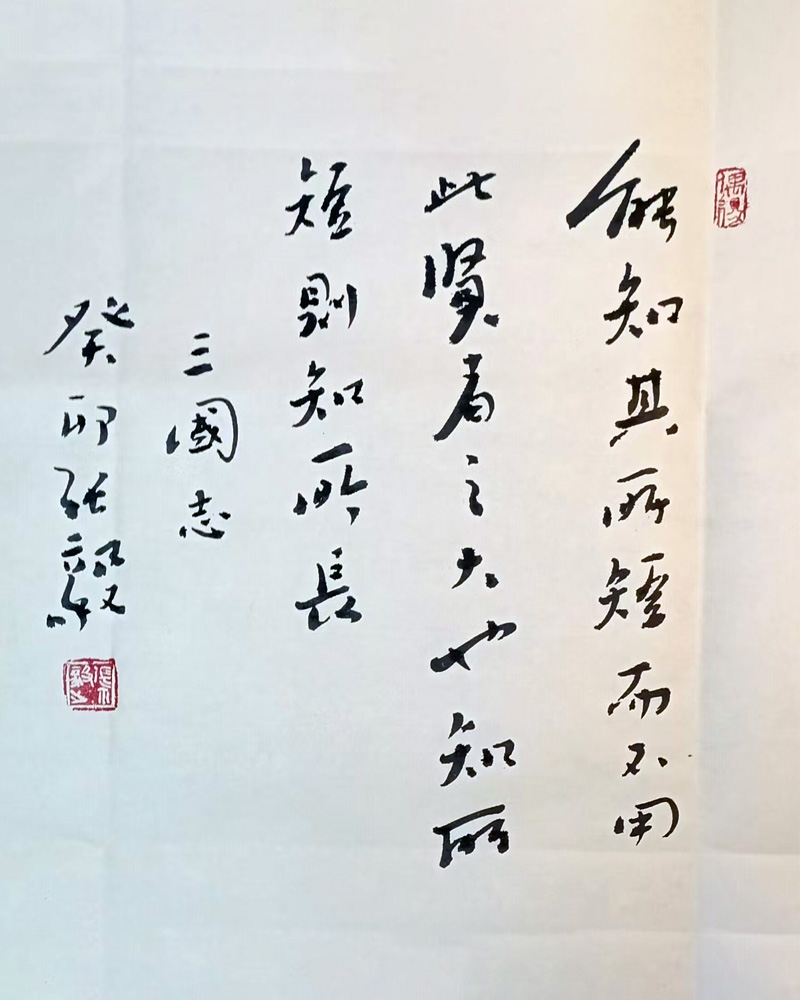 能知其所短而不用
此賢者之大也知所
短則知所長
三國志
癸卯張毅